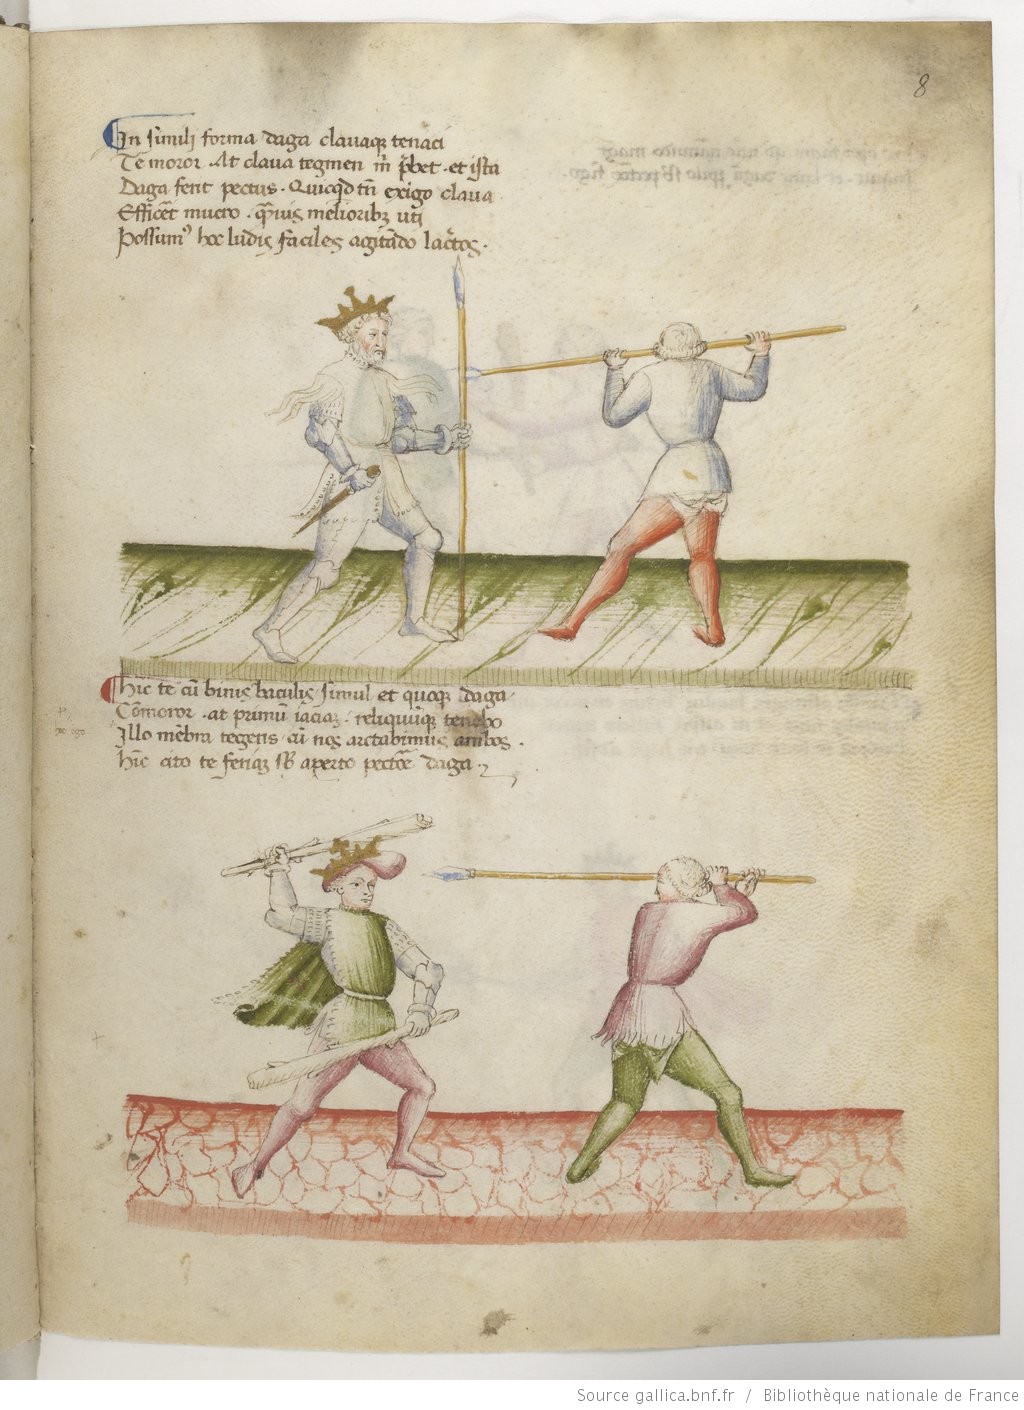 8
In simili forma daga clavaque tenaci
Te moror. At clava tegmen m̅ p̅bet. et ista
Daga ferit pectus. Quicq̅d tn̅ exigo clava
Efficeret mucro. q̅mvis melioribꝫ uti
Possumꝰ hoc ludis faciles agitādo lac̅tos.
Hic te cū binis baculis simul et quoque daga
Cōmoror. at primū iaciaꝫ. reliquūqꝫ tenebo
Illo mēbra tegens. cū nos arctabimus ambos.
Hic cito te feriaꝫ sb̅ aperto pectōe daga.
Source gallica.bnf.fr / Bibliothèque nationale de France